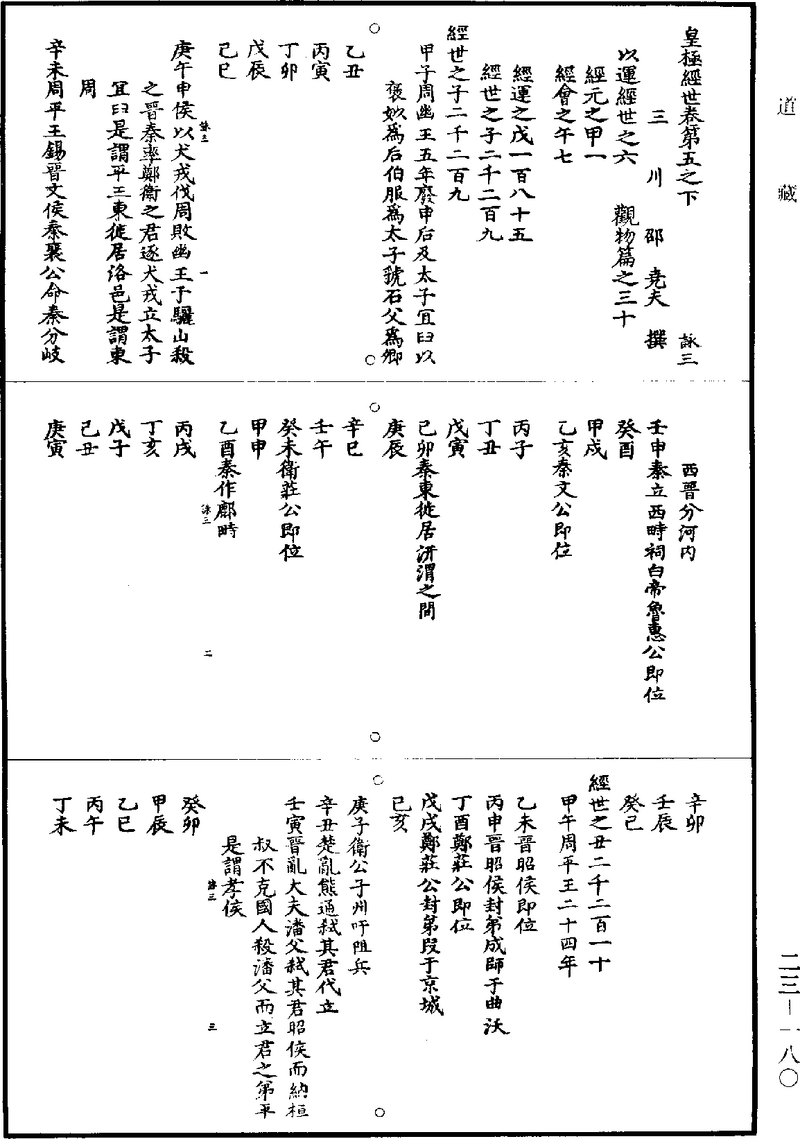 道藏
皇極經世卷第五之下 詠三
三川 邵堯夫 撰
以運經世之六 觀物篇之三十
經元之甲一
經會之午七
經運之戊一百八十五
經世之子二千二百九
經世之子二千二百九
甲子周幽王五年廢申后及太子宜臼以
襃姒爲后伯服爲太子虢石父爲卿
乙丑
丙寅
丁卯
戊辰
己巳
庚午申侯以犬戎伐周敗幽王于驪山殺
之晉秦率鄭衛之君逐犬戎立太子
宜臼是謂平王東徙居洛邑是謂東
周
辛未周平王錫晉文侯秦襄公命秦分岐
詠三 一
西晉分河內
壬申秦立西畤祠白帝魯惠公即位
癸酉
甲戌
乙亥秦文公即位
丙子
丁丑
戊寅
己卯秦東徙居汧渭之間
庚辰
辛巳
壬午
癸未衛莊公即位
甲申
乙酉秦作鄜畤
丙戌
丁亥
戊子
己丑
庚寅
詠三 二
辛卯
壬辰
癸巳
經世之丑二千二百一十
甲午周平王二十四年
乙未晉昭侯即位
丙申晉昭侯封弟成師于曲沃
丁酉鄭莊公即位
戊戌鄭莊公封弟段于京城
己亥
庚子衛公子州吁阻兵
辛丑楚亂熊通弒其君代立
壬寅晉亂大夫潘父弒其君昭侯而納桓
叔不克國人殺潘父而立君之弟平
是謂孝侯
癸卯
甲辰
乙巳
丙午
丁未
詠三 三
二三—一八〇